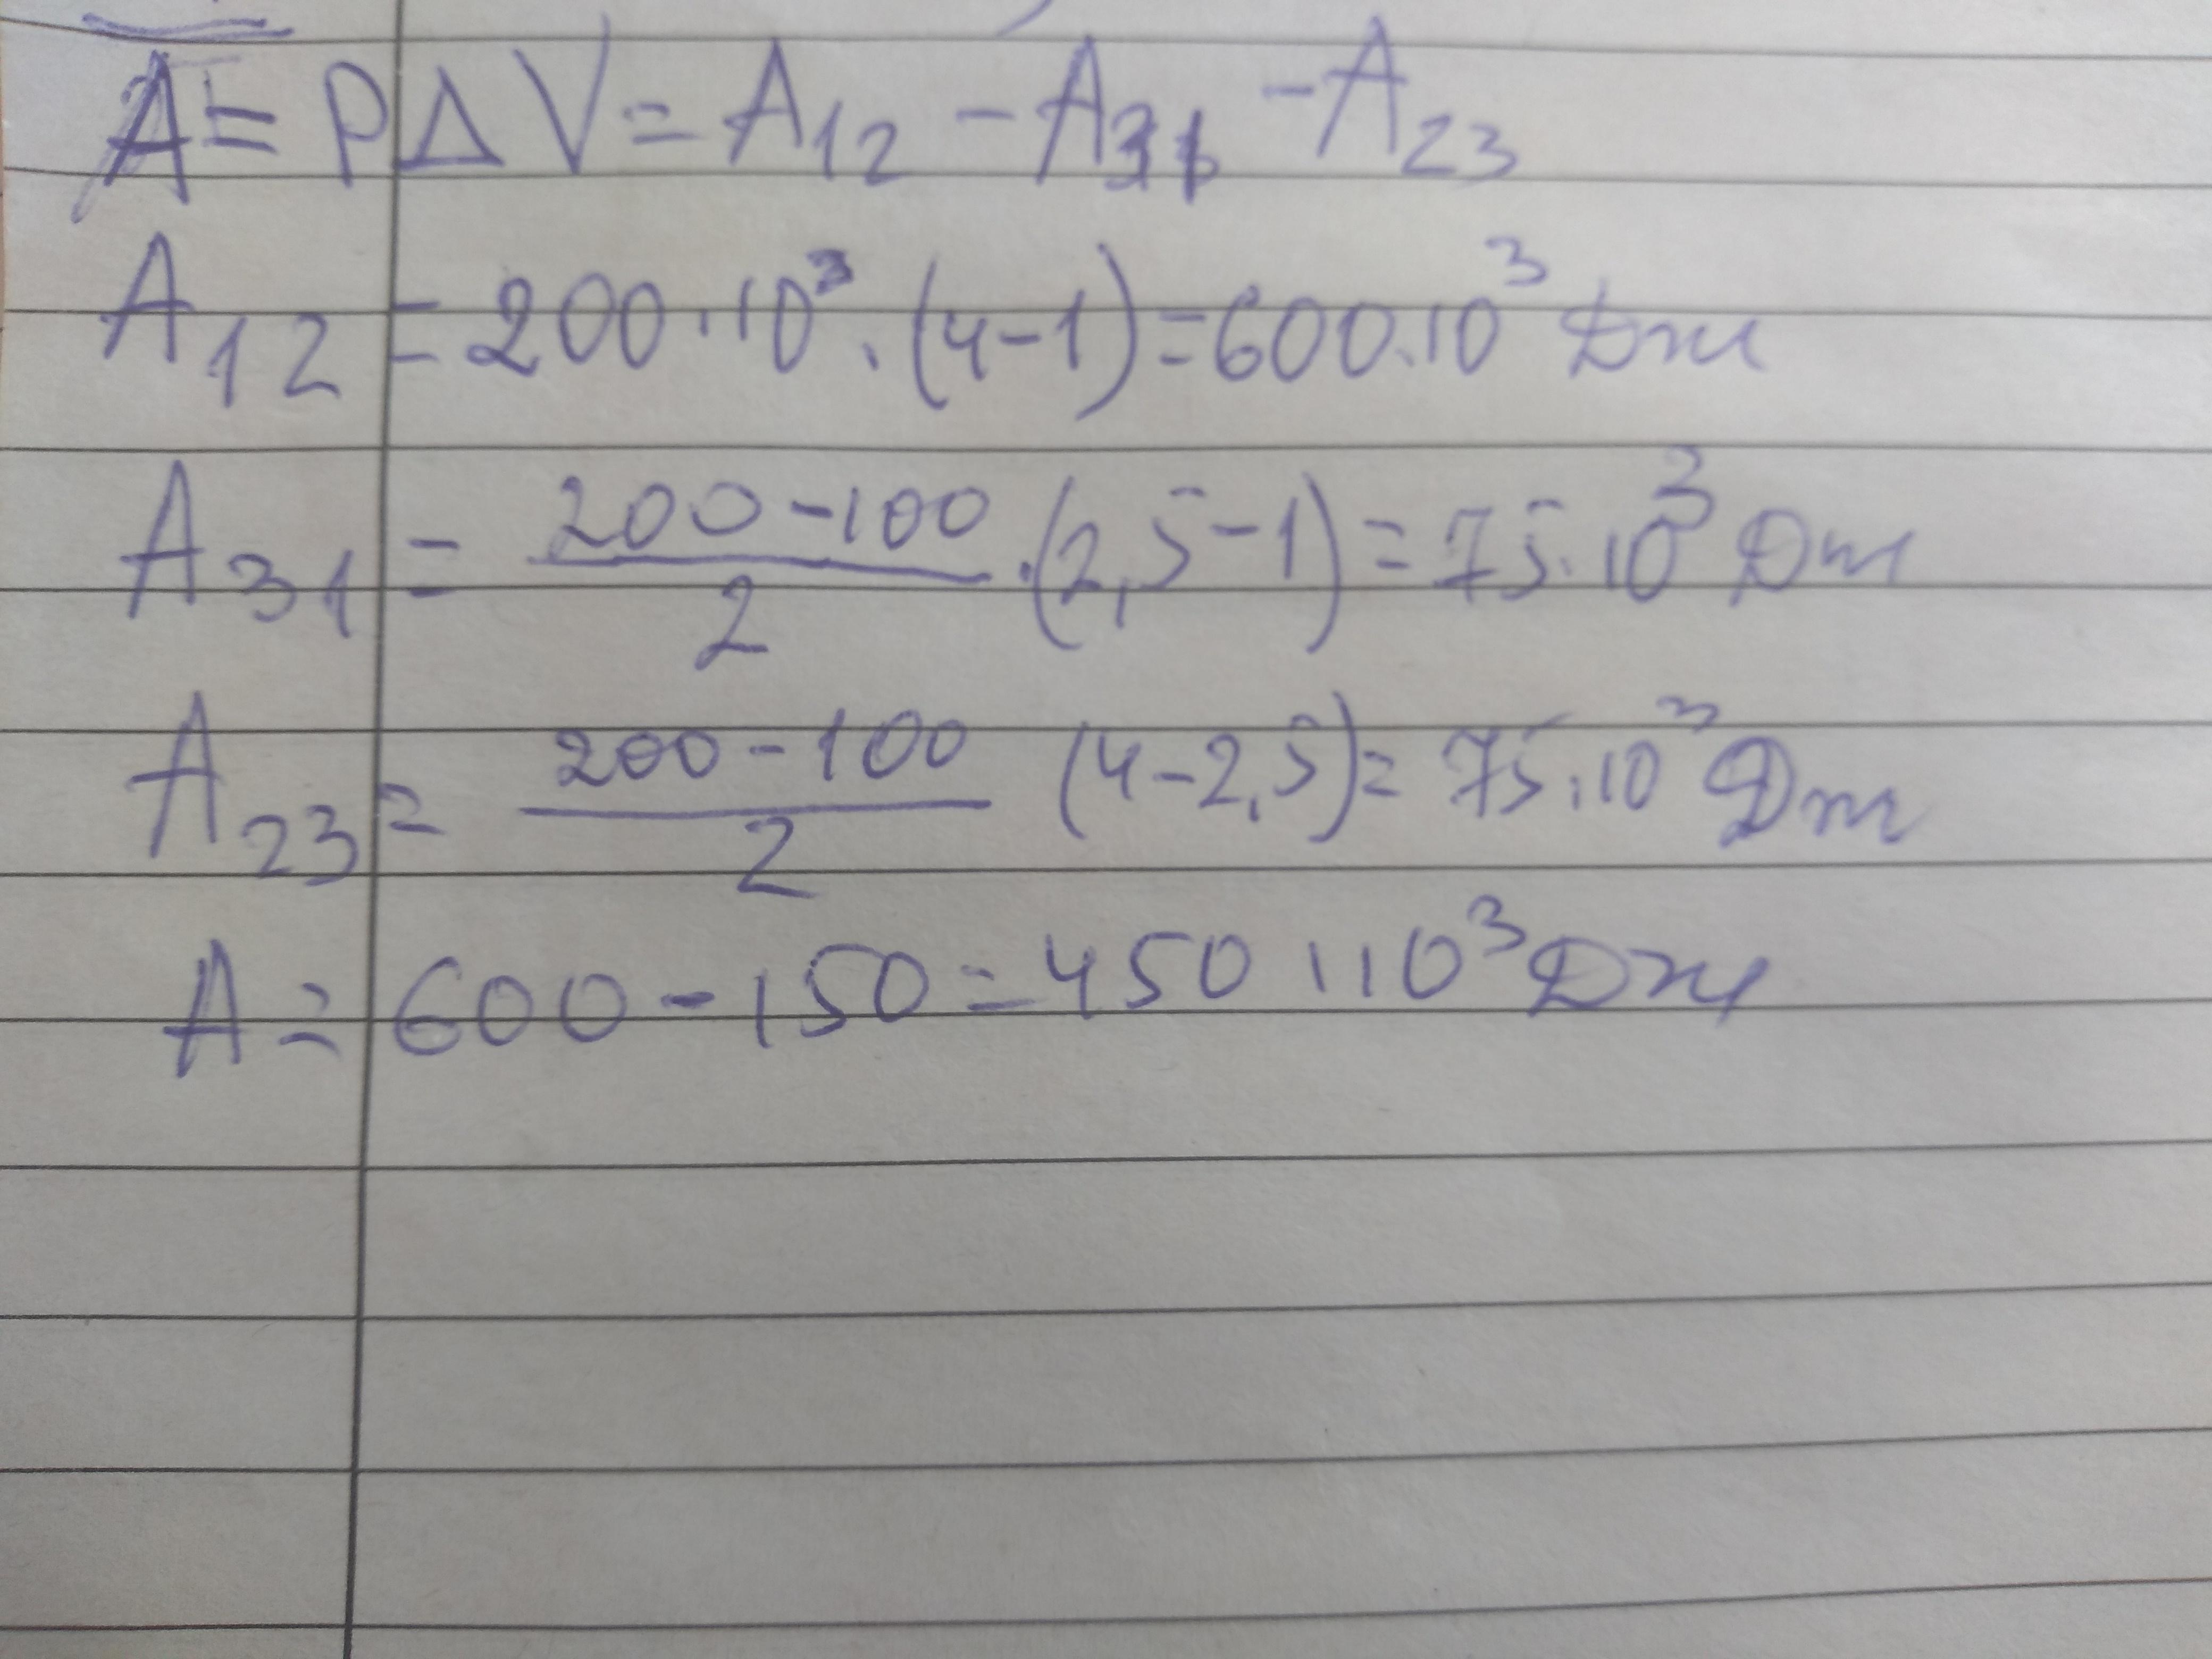 A = PΔV = A₁₂ - A₃₁ - A₂₃
A₁₂ = 200·10³·(4-1) = 600·10³ Дж
A₃₁ = (200-100)/2 ·(2,5-1) = 75·10³ Дж
A₂₃ = (200-100)/2 (4-2,5) = 75·10³ Дж
A = 600 - 150 = 450·10³ Дж